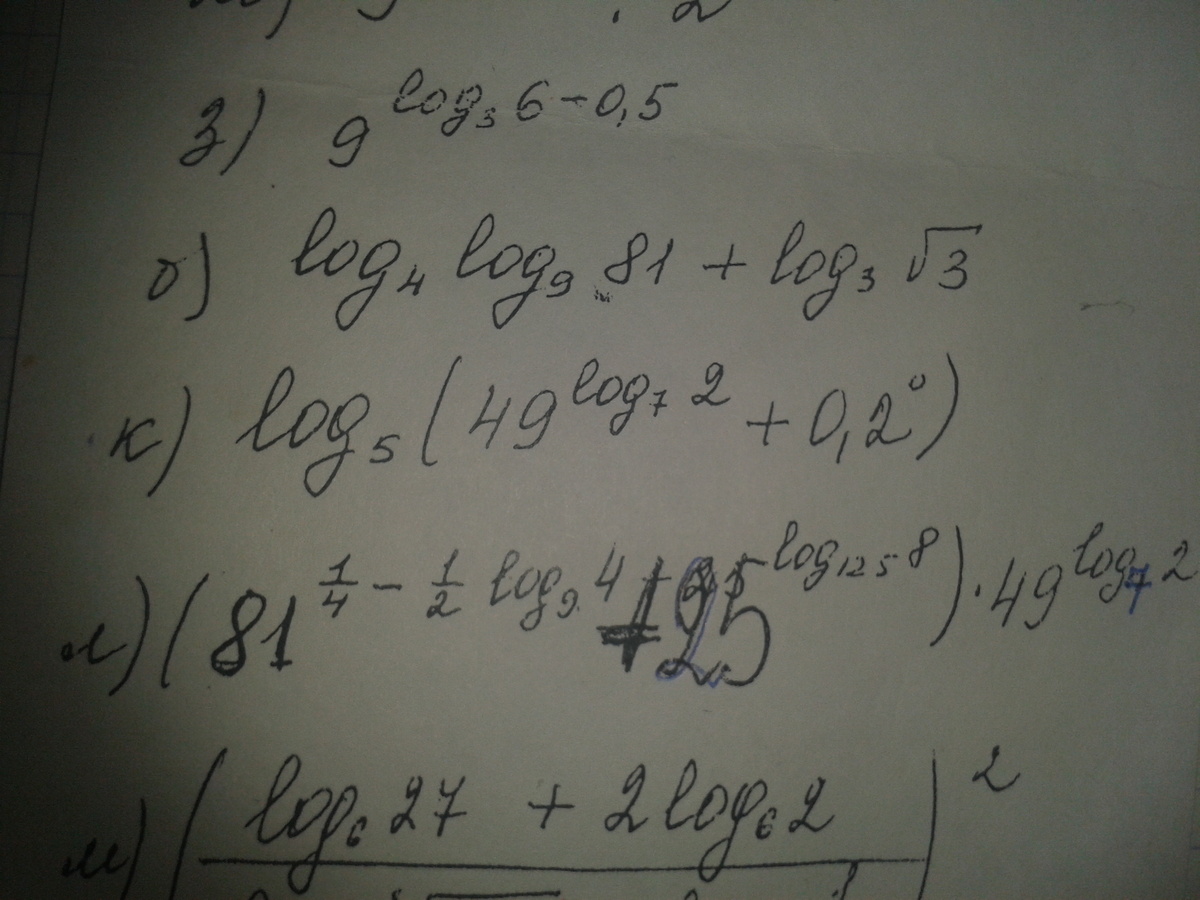 з) 9^{log₃ 6 − 0,5}
б) log₄ log₉ 81 + log₃ √3
к) log₅ (49^{log₇ 2} + 0,2⁰)
л) (81^{1/4 − 1/2 log₉ 4} + 25^{log₁₂₅ 8}) · 49^{log₇ 2}
м) (log₆ 27 + 2 log₆ 2)²